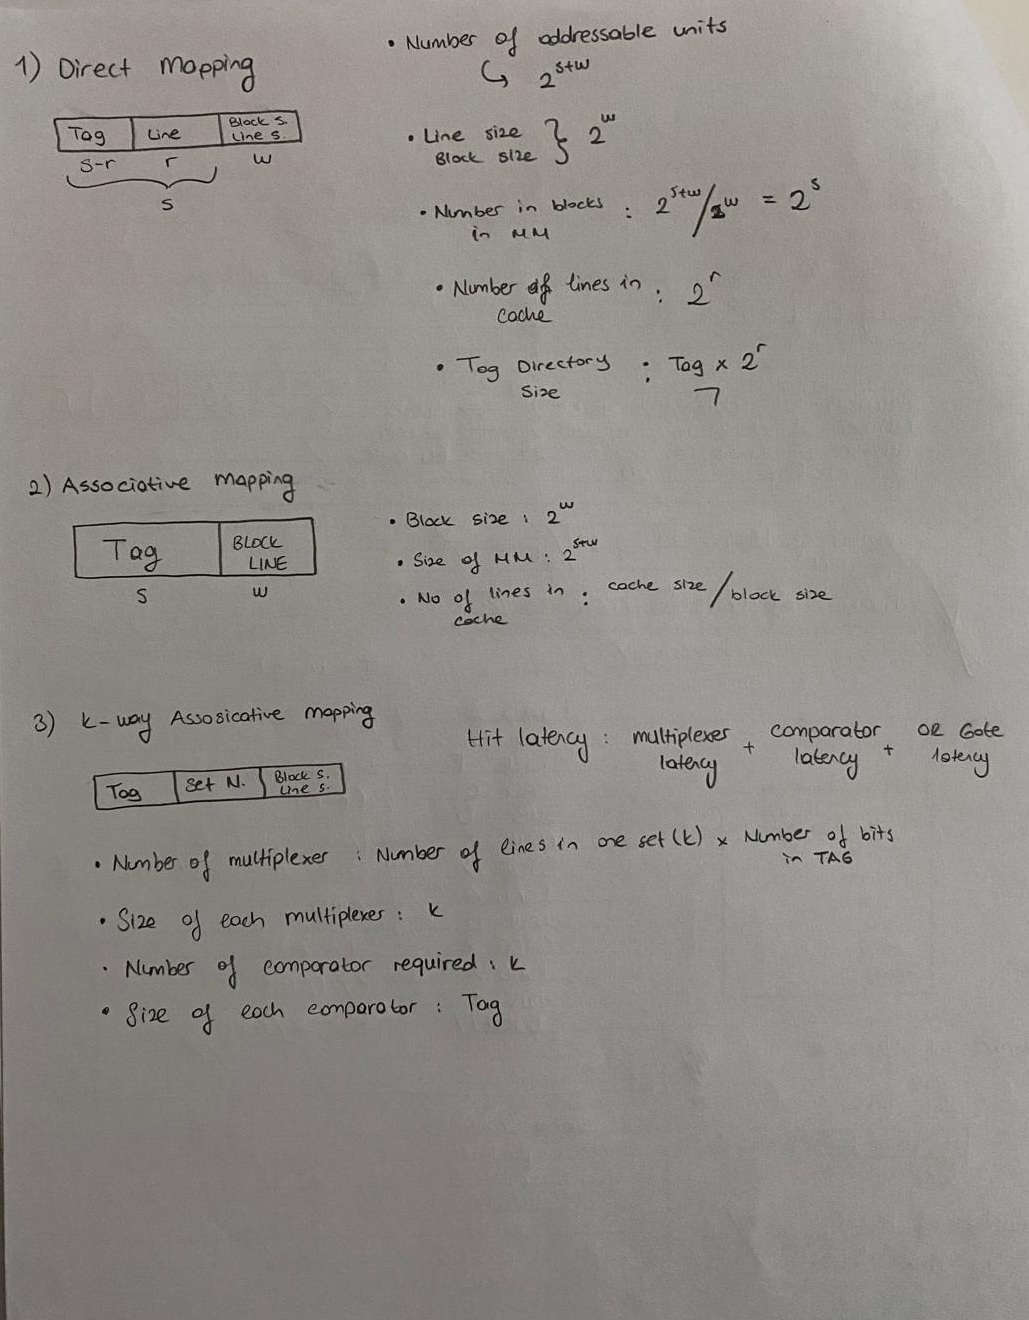 1) Direct Mapping
Tag Line Block S.
Line S.
s-r r w
s
• Number of addressable units
↳ 2^s+w
• Line size
Block size } 2^w
• Number in blocks : 2^s+w/2^w = 2^s
in MM
• Number of lines in : 2^r
cache
• Tag Directory : Tag x 2^r
Size
2) Associative Mapping
Tag BLOCK
LINE
s w
• Block size : 2^w
• Size of MM : 2^s+w
• No of lines in : cache size / block size
cache
3) k-way Assosicative mapping
Tag Set N. Block S.
Line S.
Hit latency : multiplexer + comparator + OR Gate
latency latency latency
• Number of multiplexer : Number of lines in one set (k) x Number of bits
in TAG
• Size of each multiplexer : k
• Number of comparator required : k
• Size of each comparator : Tag